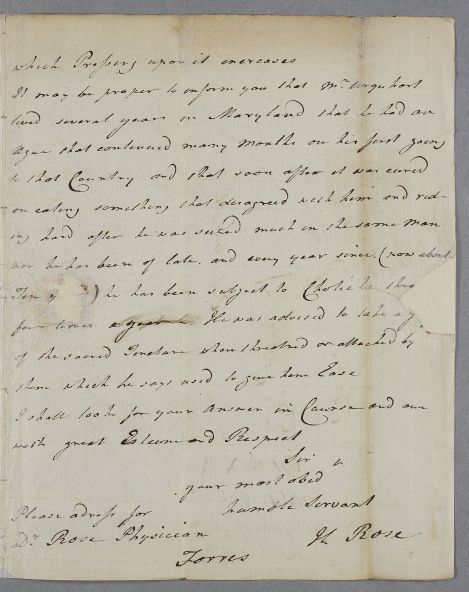 which Pressing upon it encreases
It may be proper to inform you that Mr. Urquhart
lived several years in Maryland that he had an
Ague that continued many Months on his first going
to that Country and that soon after it was cured
on eating something that disagreed with him and rid-
ing hard after he was seized much in the same Man
ner he has been of late. and every year since (now about
Ten) he has been subject to Cholicks
four times He was advised to take
of the sacred Tincture when threatned or attacked by
them which he says used to give him Ease
I shall look for your Answer in Course and am
with great Esteem and Respect
Sir
your most obed
humble Servant
H Rose
Please adress for
Dr Rose Physician
Torres